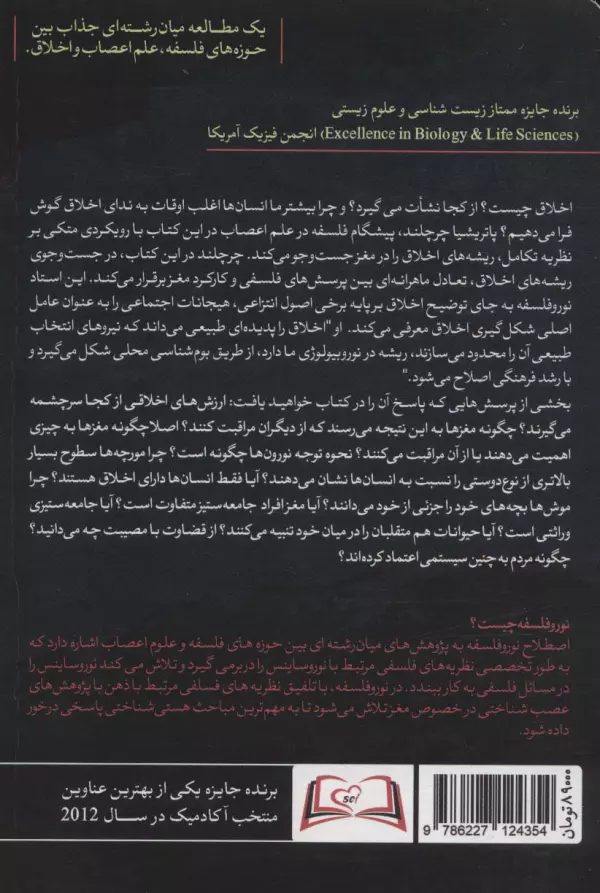 یک مطالعه میان رشته‌ای جذاب بین
حوزه‌های فلسفه، علم اعصاب و اخلاق.
برنده جایزه ممتاز زیست شناسی و علوم زیستی
(Excellence in Biology & Life Sciences) انجمن فیزیک آمریکا
اخلاق چیست؟ از کجا نشأت می گیرد؟ و چرا بیشتر ما انسان‌ها اغلب اوقات به ندای اخلاق گوش
فرا می‌دهیم؟ پاتریشیا چرچلند، پیشگام فلسفه در علم اعصاب در این کتاب با رویکردی متکی بر
نظریه تکامل، ریشه‌های اخلاق را در مغز جست‌وجو می‌کند. چرچلند در این کتاب، در جست‌وجوی
ریشه‌های اخلاق، تعادل ماهرانه‌ای بین پرسش‌های فلسفی و کارکرد مغز برقرار می‌کند. این استاد
نوروفلسفه به جای توضیح اخلاق بر پایه برخی اصول انتزاعی، هیجانات اجتماعی را به عنوان عامل
اصلی شکل گیری اخلاق معرفی می‌کند. او "اخلاق را پدیده‌ای طبیعی می‌داند که نیروهای انتخاب
طبیعی آن را محدود می‌سازند، ریشه در نوروبیولوژی ما دارد، از طریق بوم‌شناسی محلی شکل می‌گیرد و
با رشد فرهنگی اصلاح می‌شود."
بخشی از پرسش‌هایی که پاسخ آن را در کتاب خواهید یافت: ارزش‌های اخلاقی از کجا سرچشمه
می‌گیرند؟ چگونه مغزها به این نتیجه می‌رسند که از دیگران مراقبت کنند؟ اصلا چگونه مغزها به چیزی
اهمیت می‌دهند یا از آن مراقبت می‌کنند؟ نحوه توجه نورون‌ها چگونه است؟ چرا مورچه‌ها سطوح بسیار
بالاتری از نوع‌دوستی را نسبت به انسان‌ها نشان می‌دهند؟ آیا فقط انسان‌ها دارای اخلاق هستند؟ چرا
موش‌ها بچه‌های خود را جزئی از خود می‌دانند؟ آیا مغز افراد جامعه‌ستیز متفاوت است؟ آیا جامعه‌ستیزی
وراثتی است؟ آیا حیوانات هم متقلبان را در میان خود تنبیه می‌کنند؟ از قضاوت با مصیبت چه می‌دانید؟
چگونه مردم به چنین سیستمی اعتماد کرده‌اند؟
نوروفلسفه چیست؟
اصطلاح نوروفلسفه به پژوهش‌های میان رشته ای بین حوزه های فلسفه و علوم اعصاب اشاره دارد که
به طور تخصصی نظریه‌های فلسفی مرتبط با نوروساینس را در بر می گیرد و تلاش می کنند نوروساینس را
در مسائل فلسفی به کار ببندد. در نوروفلسفه، با تلفیق نظریه های فسلفی مرتبط با ذهن با پژوهش‌های
عصب شناختی در خصوص مغز تلاش می‌شود تا به مهم‌ترین مباحث هستی‌شناختی پاسخی درخور
داده شود.
برنده جایزه یکی از بهترین عناوین
منتخب آکادمیک در سال 2012
sci
9 786227 124354
۸۹۰۰۰ تومان